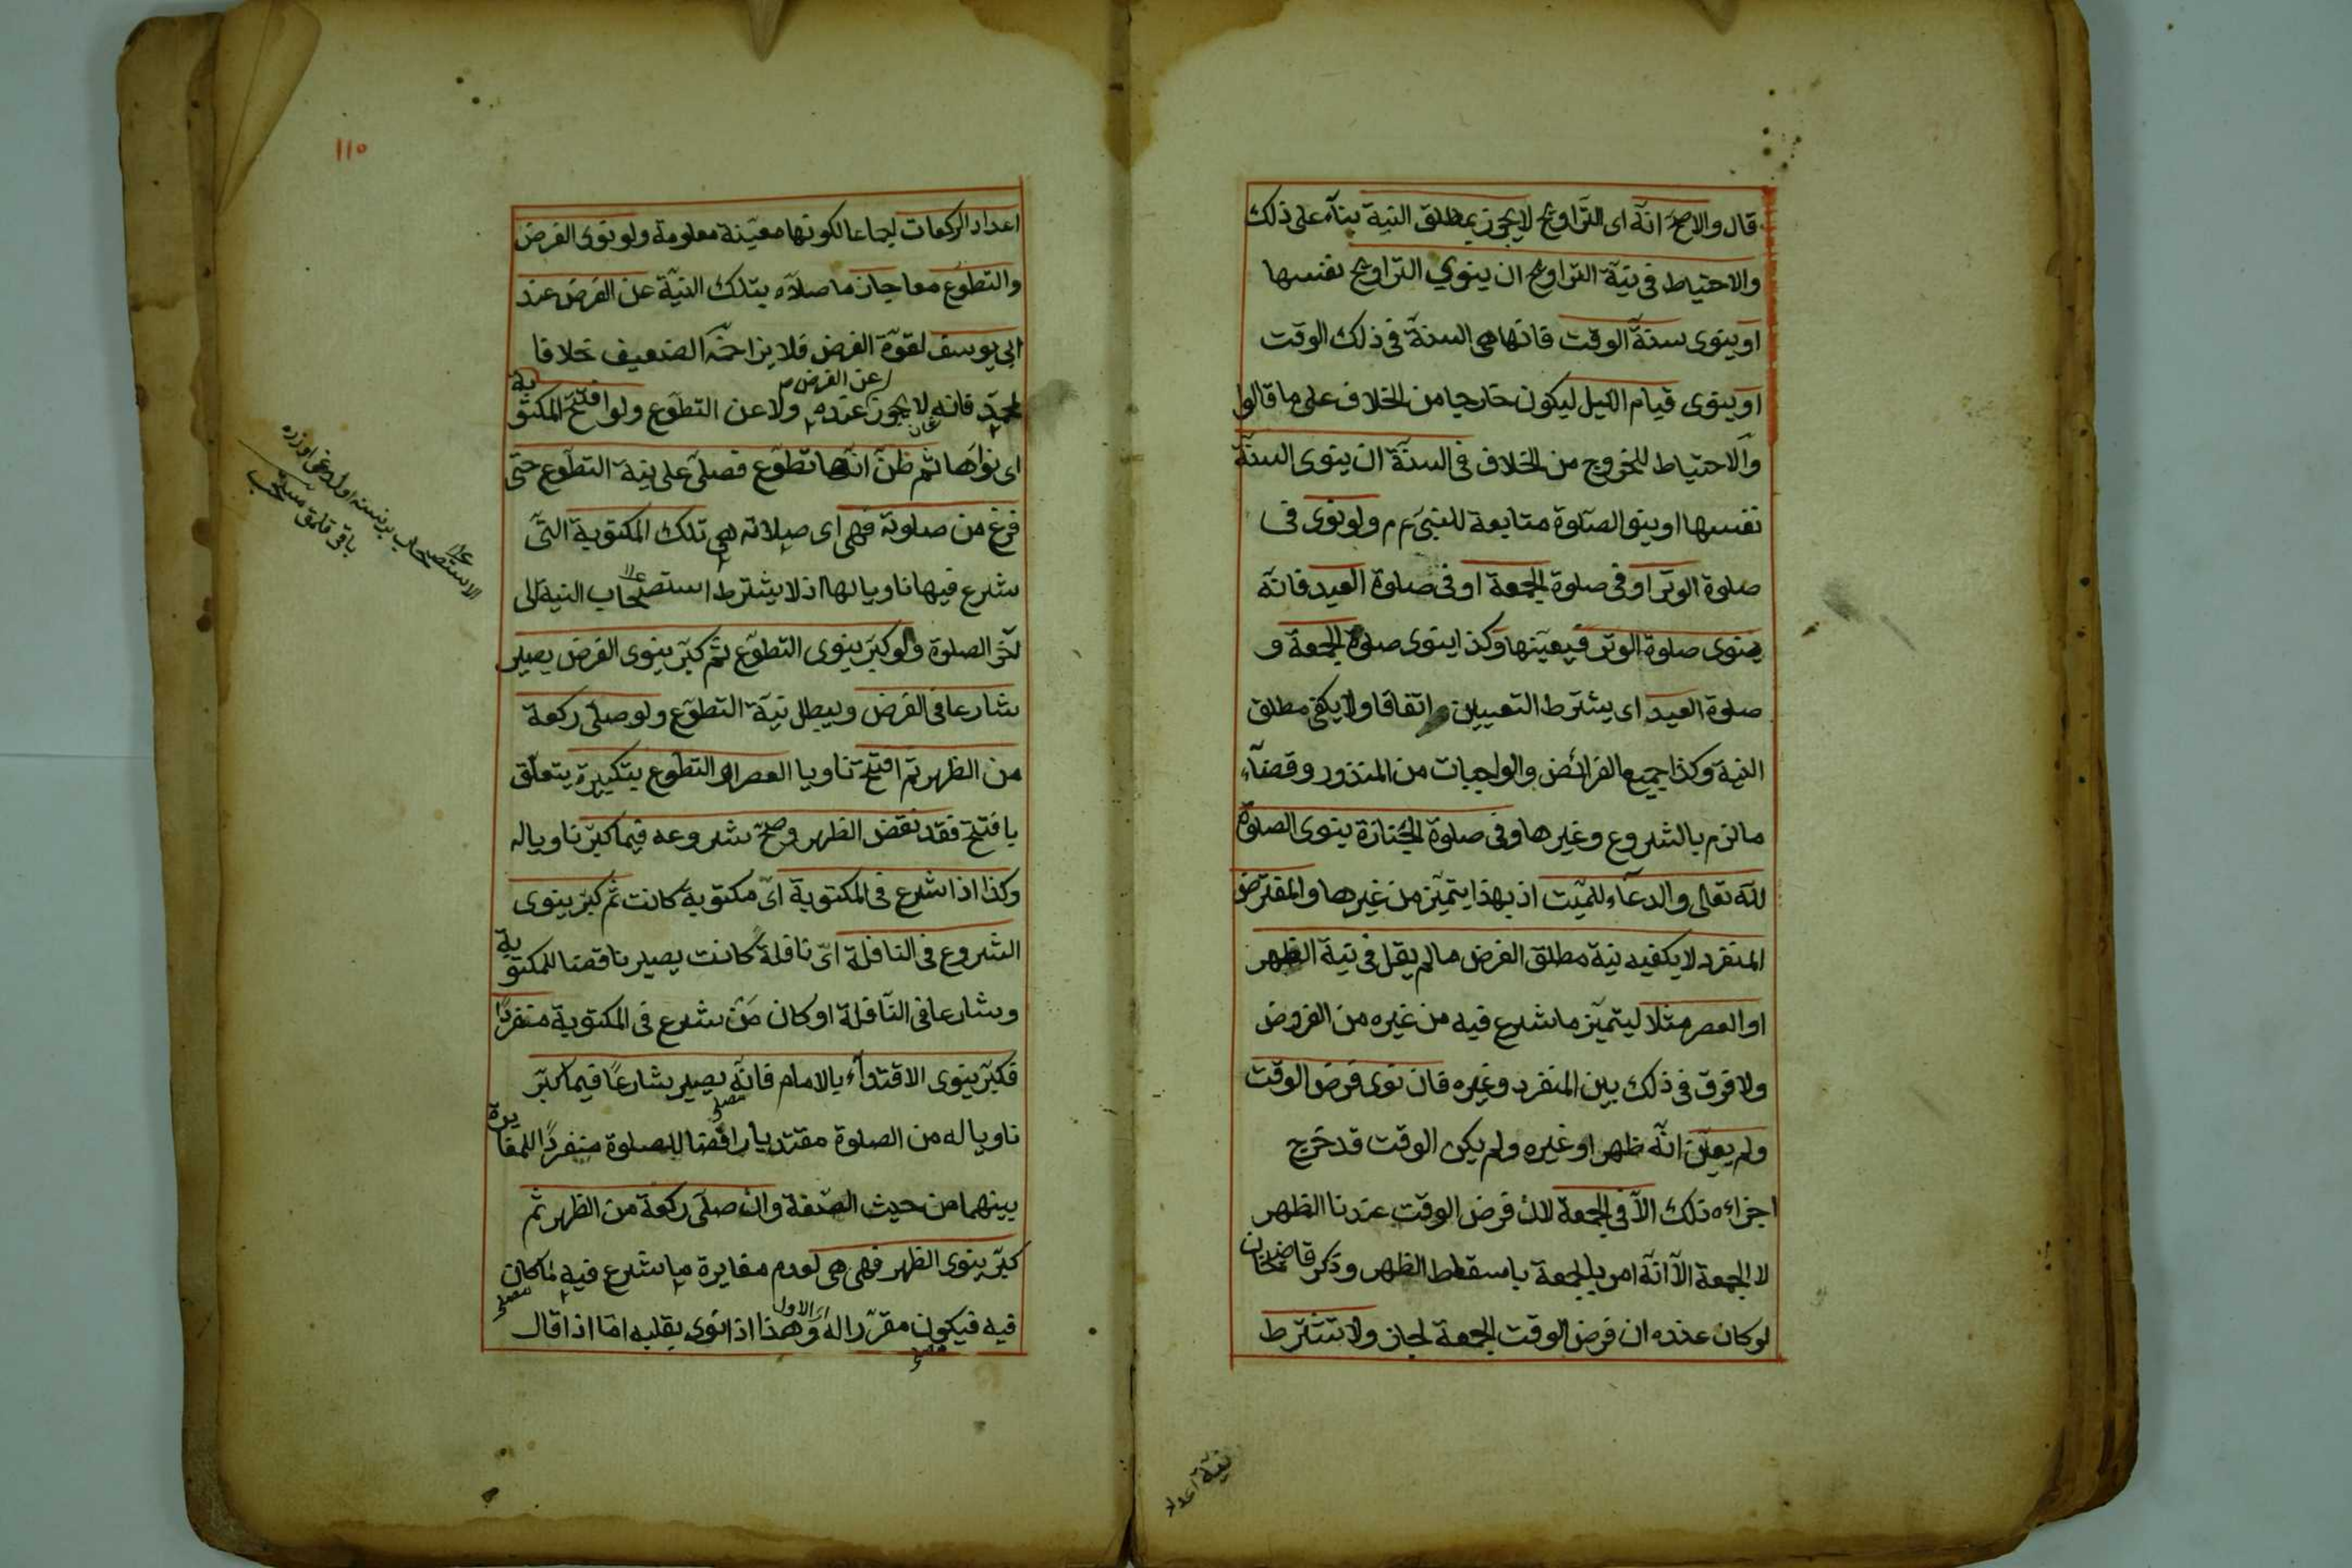 قال والاصح انه اى التراويح لا يجوز بمطلق النية بناء على ذلك
والاحتياط فى نية التراويح ان ينوي التراويح نفسها
او ينوى سنة الوقت فانها هى السنة فى ذلك الوقت
او ينوى قيام الليل ليكون خارجا من الخلاف على ما قالوا
والاحتياط للخروج من الخلاف فى السنة ان ينوى السنة
نفسها او ينو الصلوة متابعة للنبى ع م ولو نوى فى
صلوة الوتر او فى صلوة الجمعة او فى صلوة العيد فانه
ينوى صلوة الوتر فيعينها وكذا ينوى صلوة الجمعة و
صلوة العيد اى يشترط التعيين اتفاقا ولا يكفى مطلق
النية وكذا جميع الفرائض والواجبات من المنذور وقضاء
ما لزم بالشروع وغيرها وفى صلوة الجنازة ينوى الصلوة
لله تعالى والدعاء للميت اذ بهذا يتميز من غيرها والمفترض
المنفرد لا يكفيه نية مطلق الفرض ما لم يقل فى نية الظهر
او العصر مثلا ليتميز ما شرع فيه من غيره من الفروض
ولا فرق فى ذلك بين المنفرد وغيره فان نوى فرض الوقت
ولم يعين انه ظهر او غيره ولم يكن الوقت قد خرج
اجزاءه ذلك الا فى الجمعة لان فرض الوقت عندنا الظهر
لا الجمعة الا انه امر بالجمعة باسقاط الظهر وذكر قاضيخان
لو كان عنده ان فرض الوقت الجمعة لجاز ولا تشترط
نية اعداد
١١٥
اعداد الركعات اجماعا لكونها معينة معلومة ولو نوى الفرض
والتطوع معا جاز ما صلاه بتلك النية عن الفرض عند
ابى يوسف لقوة الفرض فلا يزاحمه الضعيف خلافا
لمحمد فانه لا يجوز عنده عن الفرض ولا عن التطوع ولو افتتح المكتوبة
اى نواها ثم ظن انها تطوع فصلى على نية التطوع حتى
فرغ من صلوته فهى اى صلاته هى تلك المكتوبة التى
شرع فيها ناويا لها اذ لا يشترط استصحاب النية الى
آخر الصلوة ولو كبر ينوى التطوع ثم كبر ينوى الفرض يصير
شارعا فى الفرض ويبطل نية التطوع ولو صلى ركعة
من الظهر ثم افتتح ناويا العصر او التطوع بتكبيرة يتعلق
بافتتح فقد نقض الظهر وصح شروعه فيما كبر ناويا له
وكذا اذا شرع فى المكتوبة اى مكتوبة كانت ثم كبر ينوى
الشروع فى النافلة اى نافلة كانت يصير ناقضا للمكتوبة
وشارعا فى النافلة او كان من شرع فى المكتوبة منفردا
فكبر ينوى الاقتداء بالامام فانه يصير شارعا فيما كبر
ناويا له من الصلوة مقتديا رافضا للصلوة منفردا للمغايرة
بينهما من حيث الصفة وان صلى ركعة من الظهر ثم
كبر ينوى الظهر فهى هى لعدم مغايرة ما شرع فيه لما كان
فيه فيكون مقررا له اى الاول وهذا اذا نوى بقلبه اما اذا قال